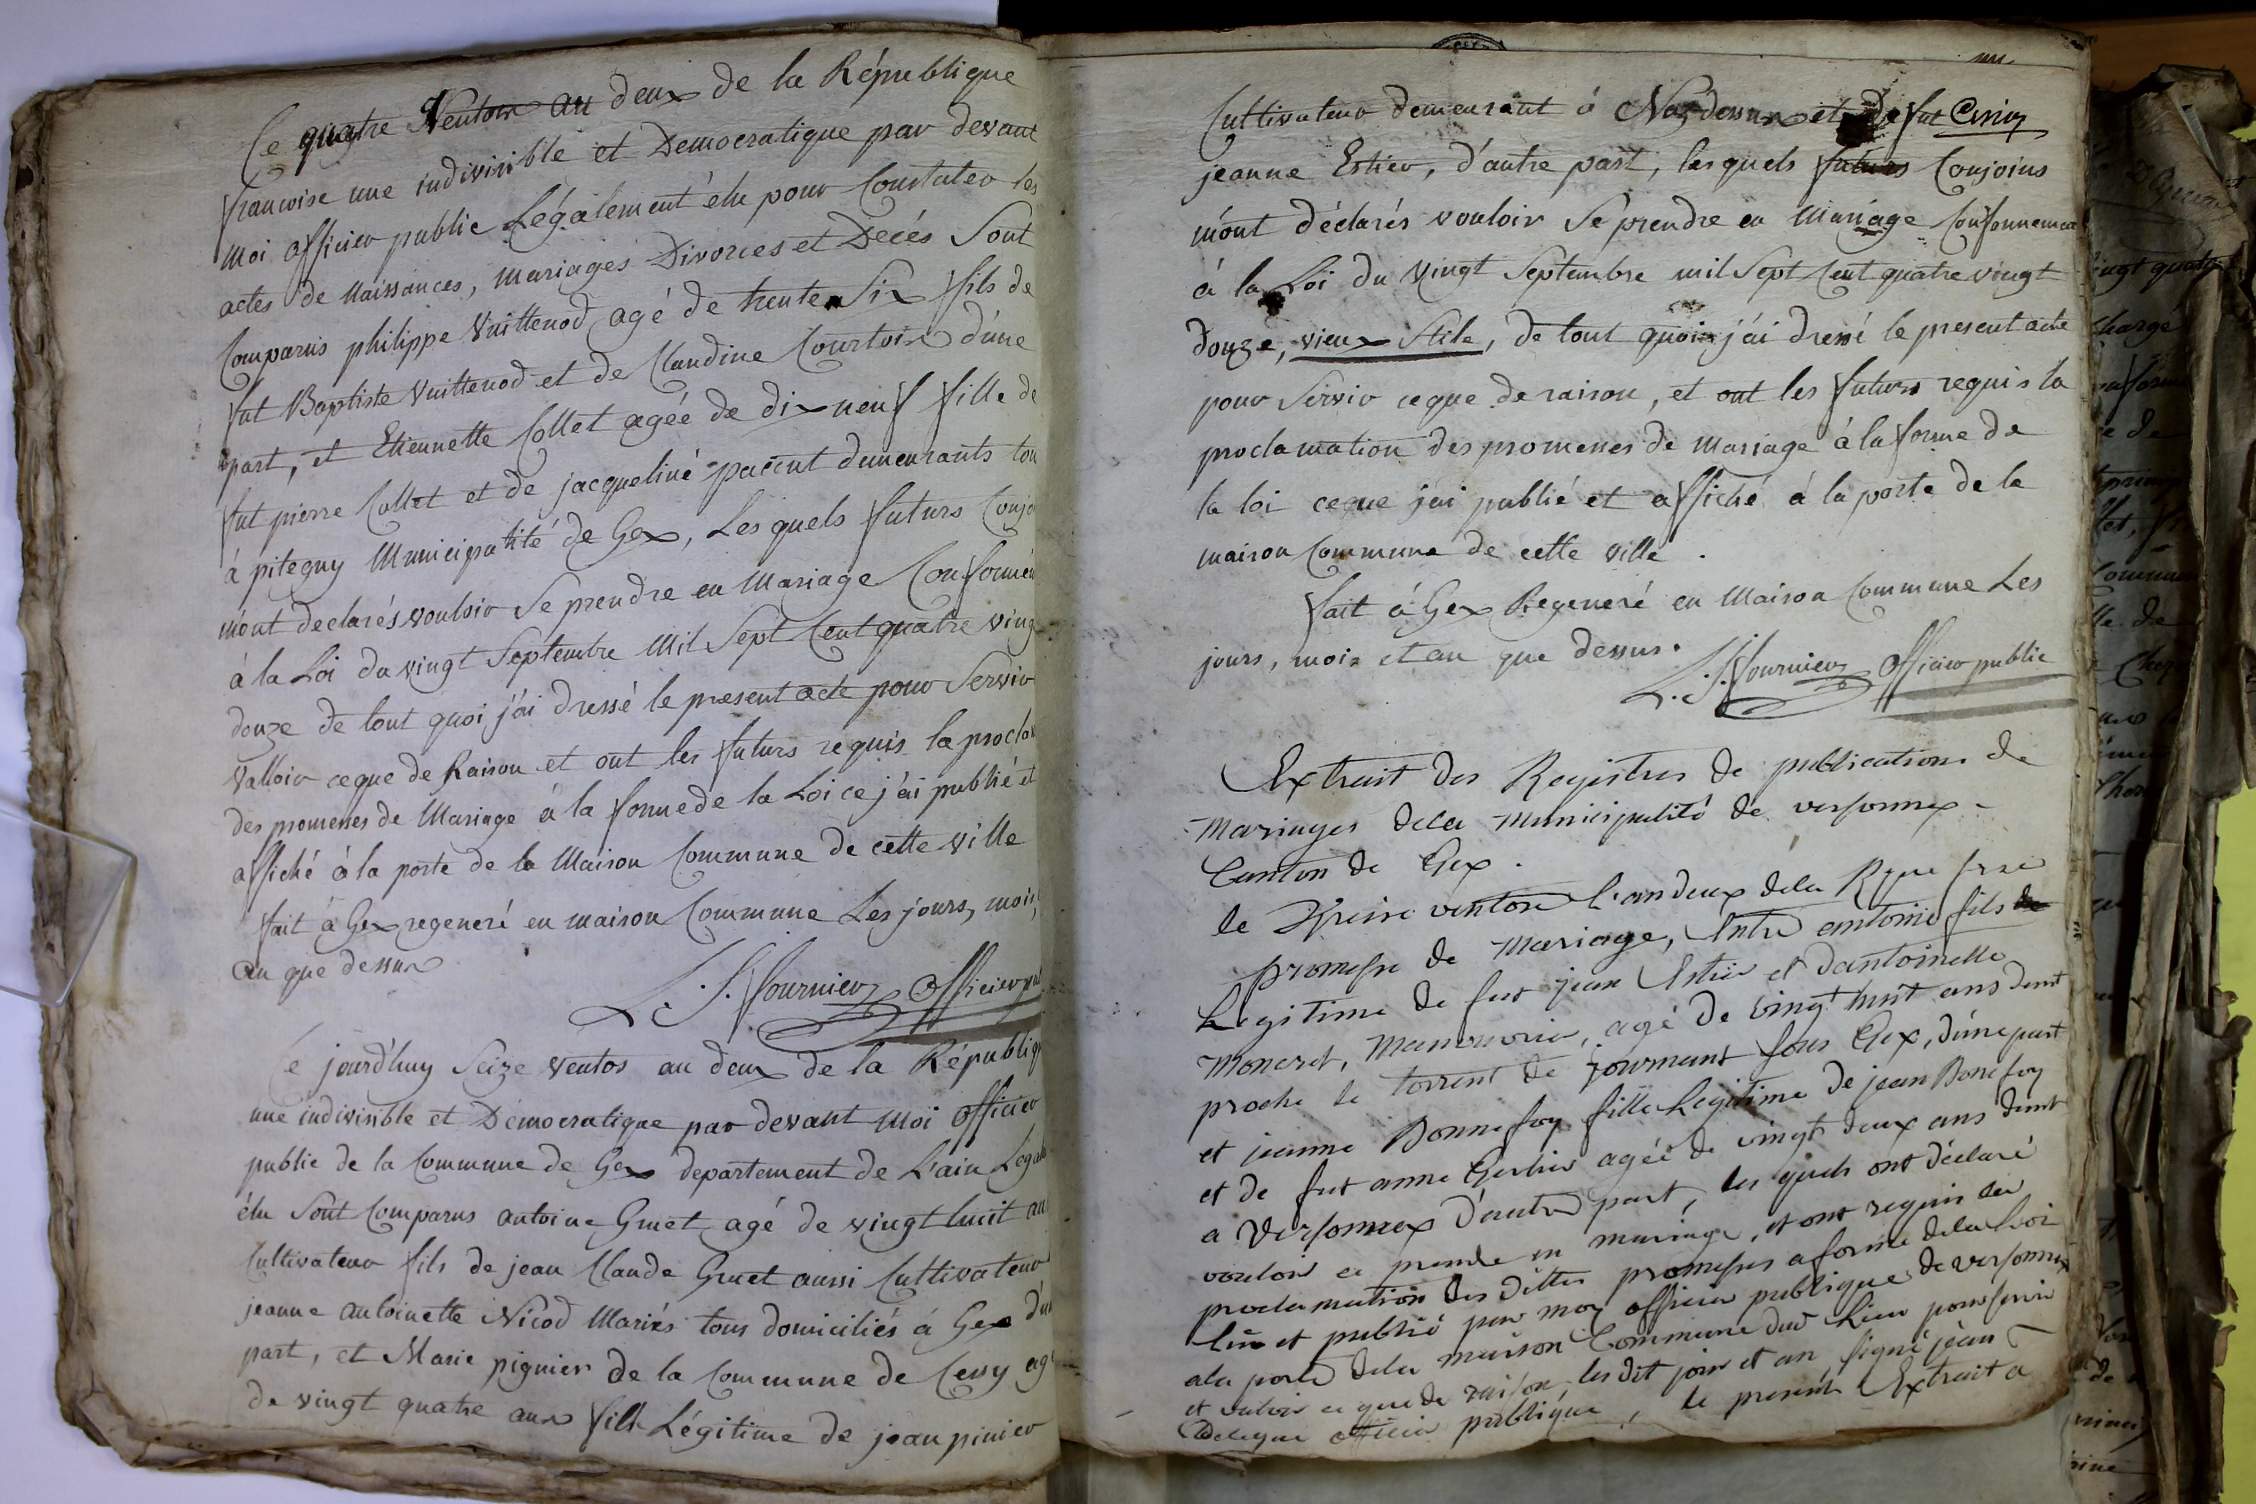 Ce quatre Ventose an deux de la République
francoise une indivisible et Democratique par devant
moi officier public Légalement élu pour Constater les
actes de Naissances, mariages Divorces et Décés Sont
Comparus philippe Vuittenod agé de trente Six fils de
fut Baptiste Vuittenod et de Claudine Courtois d'une
part, et Etiennette Collet agée de dixneuf fille de
fut pierre Collet et de jacqueliné pacçut demeurants tou
à pitegny Municipalité de Gex, Les quels futurs Conjo
m'ont declarés vouloir Se prendre en Mariage Conformém
à la Loi du vingt Septembre Mil Sept Cent quatre ving
douze de tout quoi j'ai dressé le present acte pour Servir
Valloir ceque de Raison et ont les futurs requis la procla
des promesses de Mariage à la forme de la Loi ce j'ai publié et
affiché à la porte de la Maison Commune de cette ville
fait à Gex regeneré en maison Commune Les jours, mois,
an que dessus
L. S. fournier officier pub
Ce jourd'huy Seize ventos an deux de la Républiq
une indivisible et Démocratique par devant Moi officier
public de la Commune de Gex departement de L'ain Légale
élu Sont Comparus antoine Gruet agé de vingt huit an
Cultivateur fils de jean Claude Gruet aussi Cultivateur
jeanne antoinette Nicod Mariés tous domiciliés à Gex d'u
part, et Marie pignier de la Commune de Cessy ag
de vingt quatre ans fille Légitime de jean pinier
Cultivateur demeurant à dessus et de fut
jeanne Estier, d'autre part, les quels futurs Conjoins
m'ont déclarés vouloir Se prendre en Mariage Conformement
à la Loi du Vingt Septembre mil Sept Cent quatre vingt
douze, vieux Stile, de tout quoi j'ai dressé le present acte
pour Servir ceque de raison, et ont les futurs requis la
proclamation des promesses de Mariage à la forme de
la loi ceque j'ai publié et affiché à la porte de la
maison Commune de cette ville.
fait à Gex Regeneré en Maison Commune Les
jours, mois et an que dessus.
L. S. fournier officier public
Extrait des Registres de publications de
Mariages dela Municipalité de versonnex
Canton de Gex.
le Treize ventose l'an deux dela Rque frse
promesse de Mariage, Entre antoine fils
Legitime de fut jean Estier et dantoinette
Moneret, Manouvrier, agé de vingt huit ans demt
proche le torrent de journant sous Gex, dune part
et jeanne Bonnefoy fille Légitime de jean Bonefoy
et de fut anne Gerlier agée de vingt deux ans demt
a Versonnex d'autre part, les quels ont déclaré
vouloir ce prendre en mariage, et ont requis la
proclamation des dittes promesses a forme dela Loi
lu et publié par moy officier publique de versonnex
ala porte dela maison Commune dud Lieu pour servir
et valoir ce que de raison, les dit jour et an, signé jean
officier publique, le present Extrait a